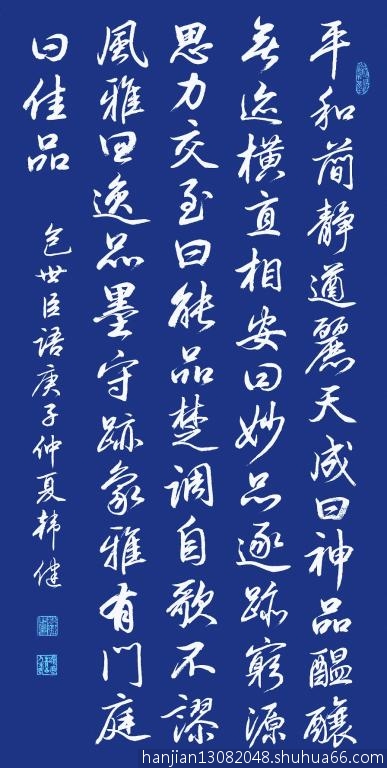 平和簡靜遒麗天成曰神品醞釀
無迹橫直相安曰妙品逐跡窮源
思力交至曰能品楚調自歌不謬
風雅曰逸品墨守跡象雅有門庭
曰佳品
包世臣語庚子仲夏韩健
hanjian13082048.shuhua66.com